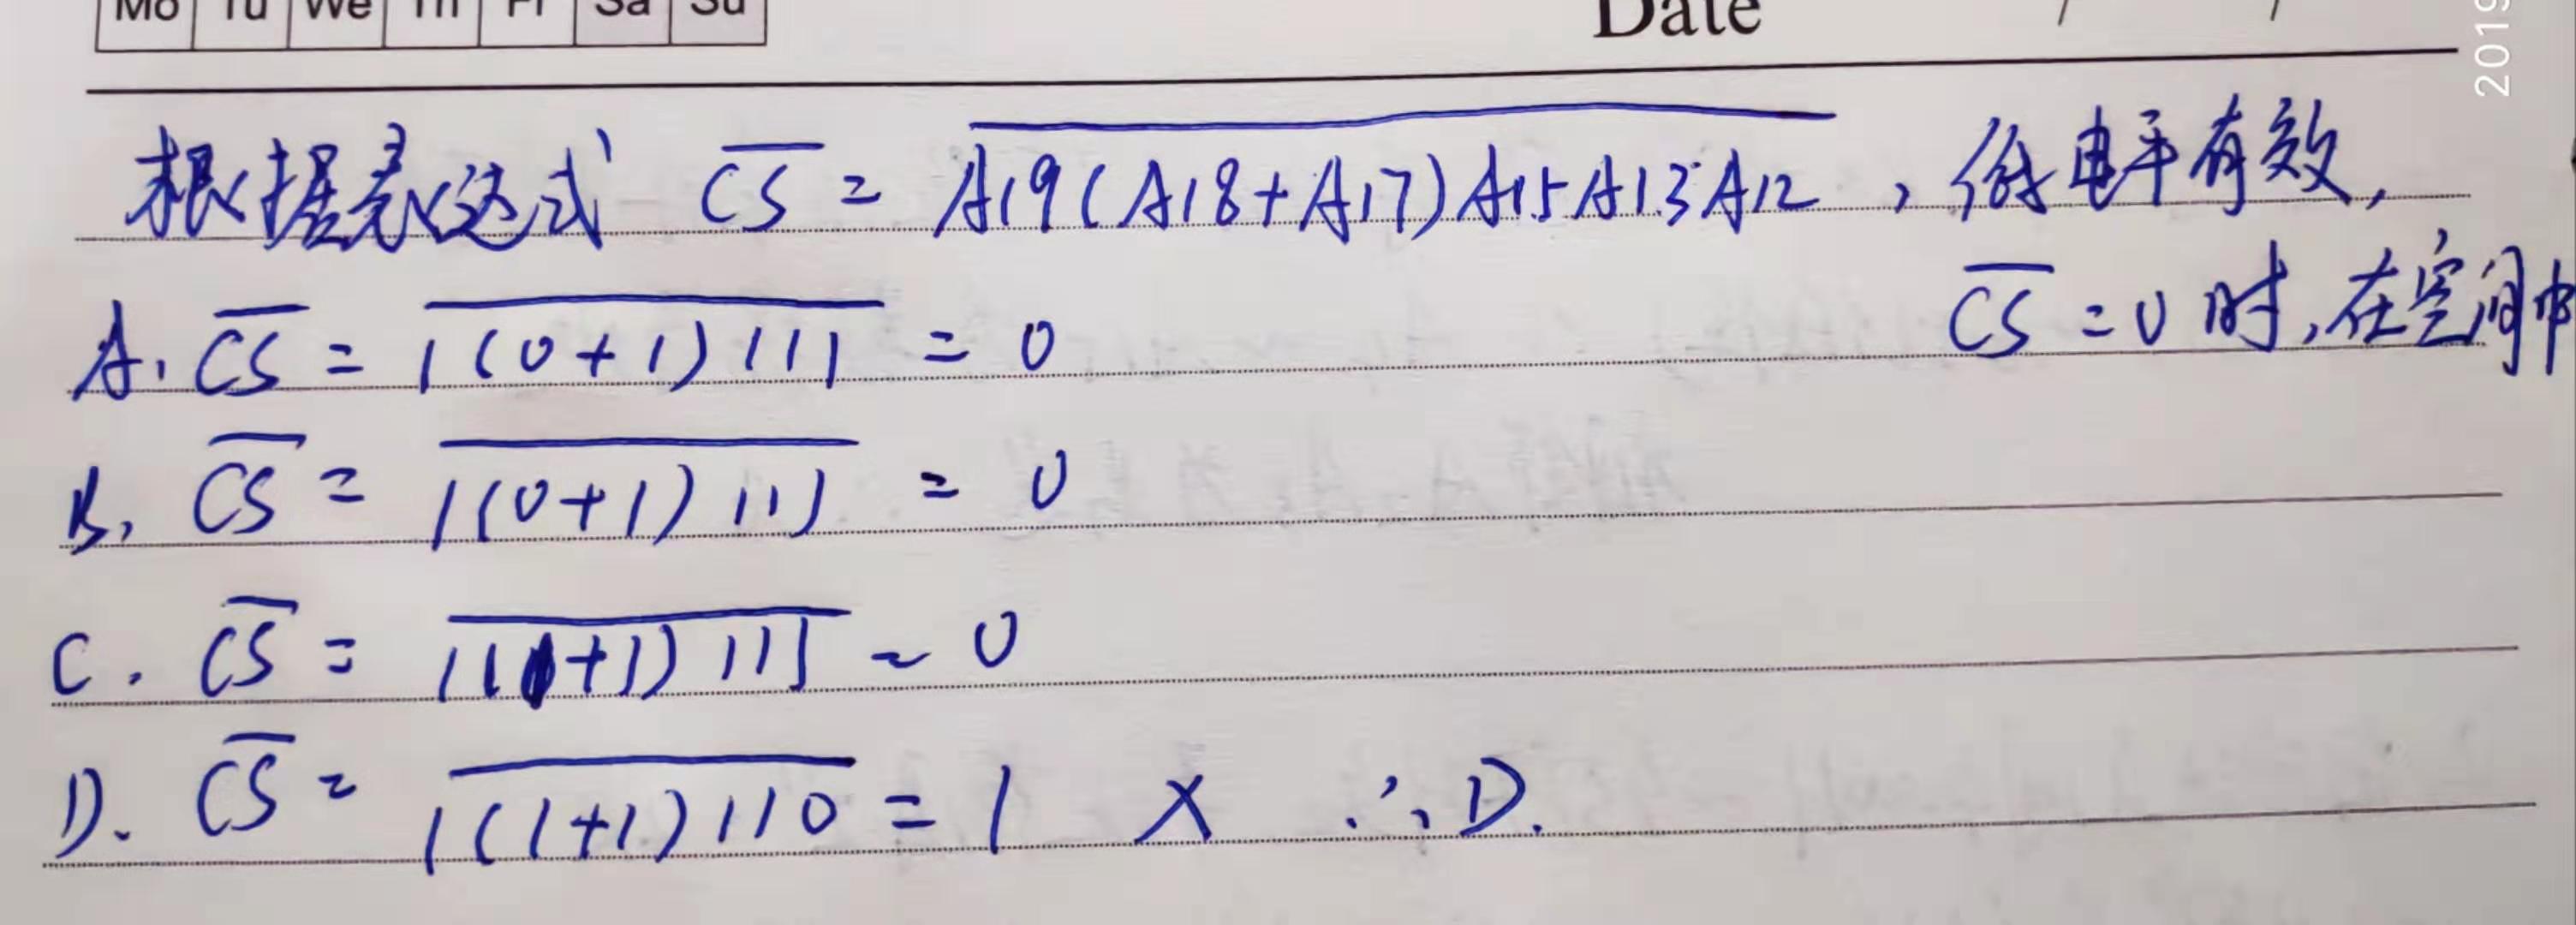 Mo Tu We Th Fr Sa Su
Date / /
2019
根据表达式 \overline{CS} = \overline{A19(A18+A17)A15A13A12}，低电平有效，
\overline{CS} = 0 时，在空间中
A. \overline{CS} = \overline{1(0+1)111} = 0
B. \overline{CS} = \overline{1(0+1)111} = 0
C. \overline{CS} = \overline{1(1+1)111} = 0
D. \overline{CS} = \overline{1(1+1)110} = 1 × ∴D.